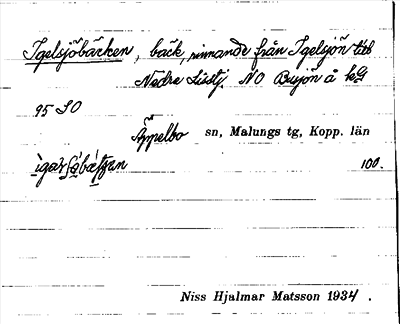 Igelsjöbäcken, bäck, rinnande från Igelsjön till
Nedre Lüstj. NO Busjön å kG
95 SO
Äppelbo sn, Malungs tg, Kopp. län
100.
Niss Hjalmar Matsson 1934.